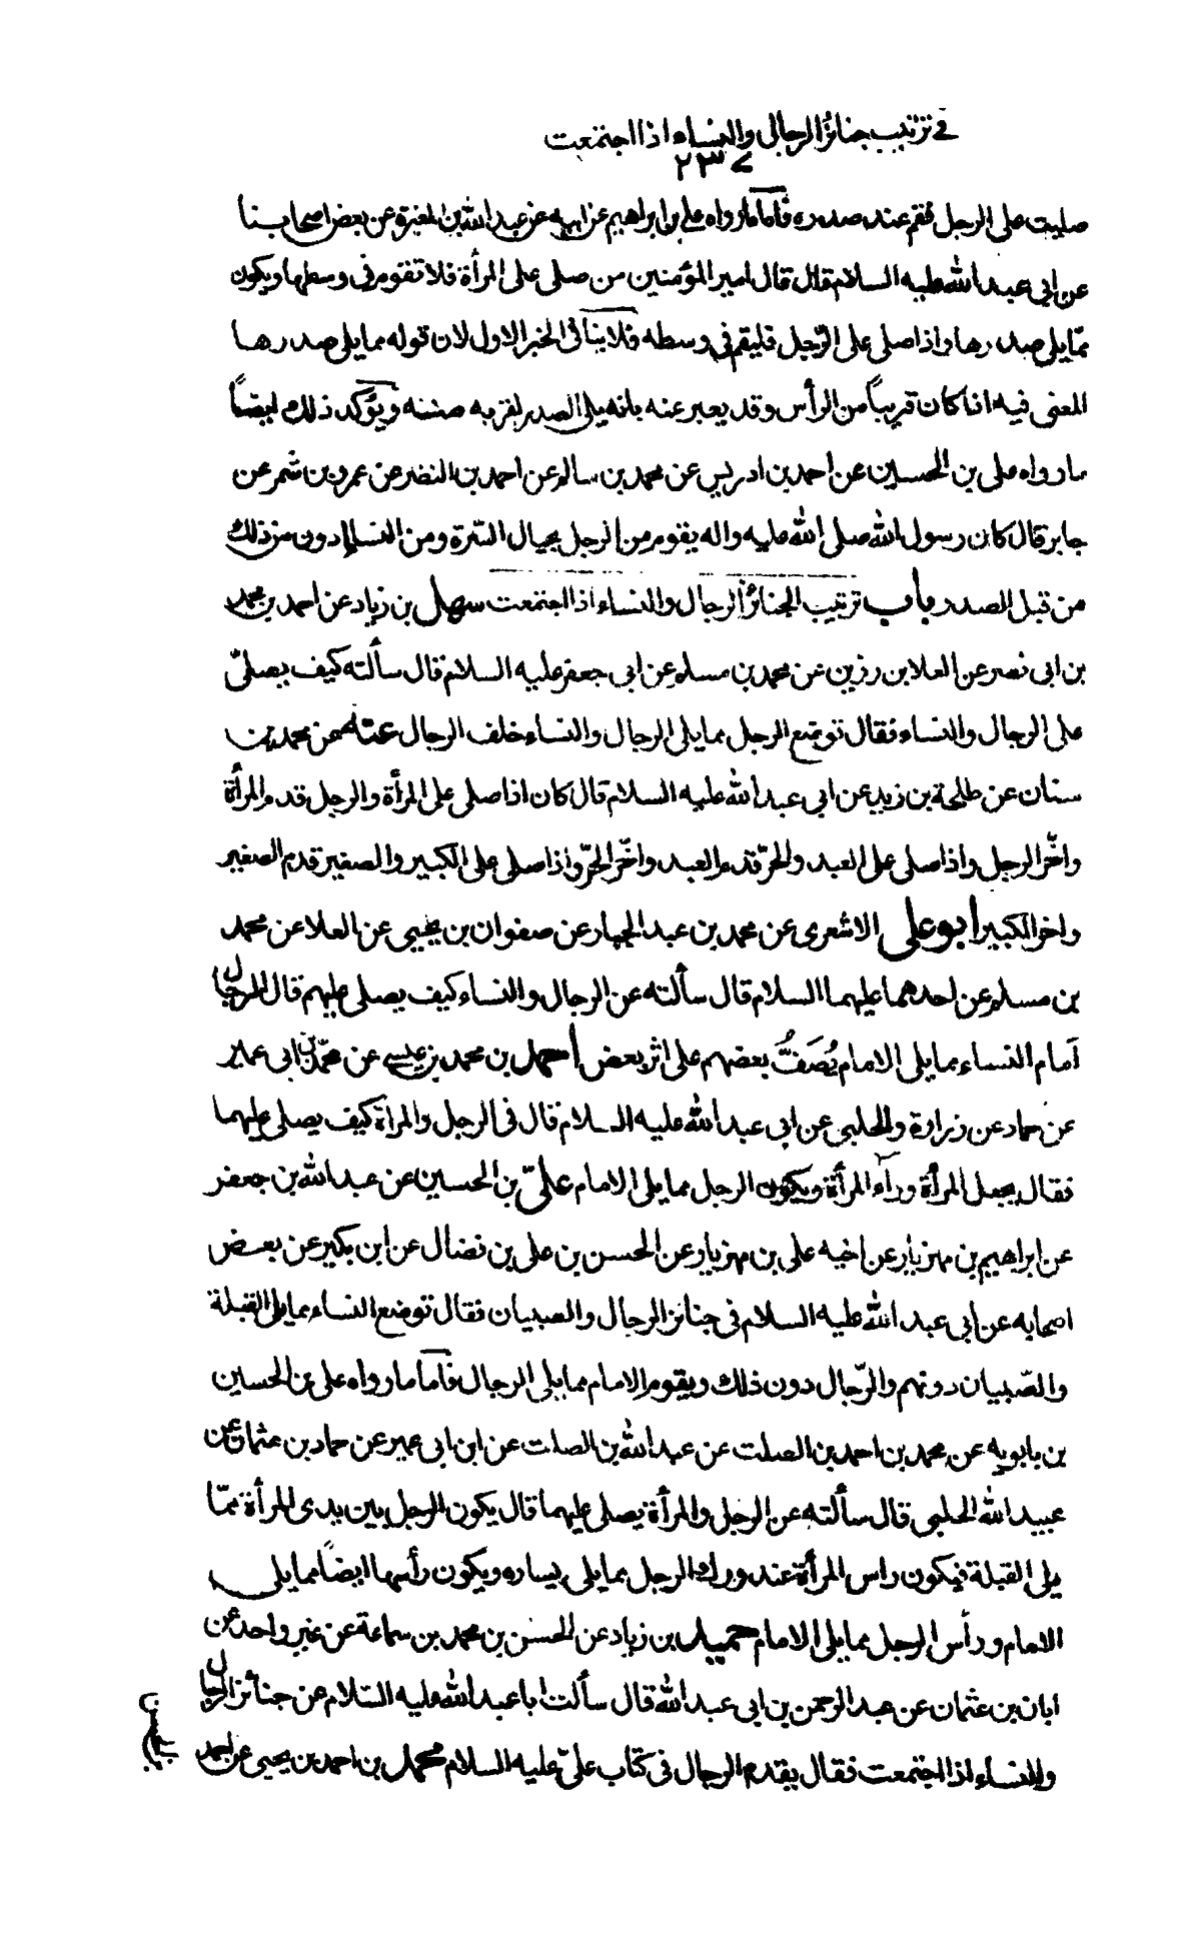 في ترتيب جنائز الرجال والنساء اذا اجتمعت
٢٣٧
صليت على الرجل فقم عند صدره فاما ما رواه علي بن ابراهيم عن ابيه عن عبد الله بن المغيرة عن بعض اصحابنا
عن ابي عبد الله عليه السلام قال قال امير المؤمنين من صلى على امرأة فلا تقوم في وسطها ويكون
ممّا يلي صدرها واذا صلى على الرّجل فليقم في وسطه فلا ينافى الخبر الاول لان قوله مما يلي صدرها
المعنى فيه اذا كان قريباً من الرأس وقد يعبر عنه بانه يلي الصدر لقربه منه ويؤكد ذلك ايضاً
ما رواه على بن الحسين عن احمد بن ادريس عن محمد بن سالم عن احمد بن النضر عن عمرو بن شمر عن
جابر قال كان رسول الله صلى الله عليه واله يقوم من الرجل بحيال السّرة ومن النساء ادون من ذلك
من قبل الصدر باب ترتيب الجنائز الرجال والنساء اذا اجتمعت سهل بن زياد عن احمد بن محمد
بن ابي نصر عن العلا بن رزين عن محمد بن مسلم عن ابي جعفر عليه السلام قال سألته كيف يصلىّ
على الرجال والنساء فقال توضع الرجل مما يلى الرجال والنساء خلف الرجال عنه عن محمد بن
سنان عن طلحة بن زيد عن ابي عبد الله عليه السلام قال كان اذا صلى على المرأة والرجل قدم المرأة
واخّر الرجل واذا صلى على العبد والحرّ قدم العبد واخّر الحرّ واذا صلى على الكبير والصغير قدم الصغير
واخر الكبير ابو علي الاشعرى عن محمد بن عبد الجبار عن صفوان بن يحيى عن العلا عن محمد
بن مسلم عن احدهما عليهما السلام قال سألته عن الرجال والنساء كيف يصلى عليهم قال الرجال
أمام النساء مما يلى الامام يُصَفُّ بعضهم على اثر بعض احمد بن محمد بن عيسى عن محمّد بن ابى عمير
عن حماد عن زرارة والحلبي عن ابي عبد الله عليه السلام قال في الرجل والمراة كيف يصلى عليهما
فقال يجعل المرأة ورآء المرأة ويكون الرجل مما يلي الامام علىّ بن الحسين عن عبد الله بن جعفر
عن ابراهيم بن مهزيار عن اخيه على بن مهزيار عن الحسن بن على بن فضال عن ابن بكير عن بعض
اصحابه عن ابي عبد الله عليه السلام في جنائز الرجال والصبيان فقال توضع النساء مما يلى القبلة
والصّبيان دونهم والرّجال دون ذلك ويقوم الامام مما يلي الرجال فاما ما رواه على بن الحسين
بن بابويه عن محمد بن احمد بن الصلت عن عبد الله بن الصلت عن ابن ابي عمير عن حماد بن عثمان عن
عبيد الله الحلبي قال سألته عن الرجل والمرأة يصلى عليهما قال يكون الرجل بين يدى المرأة ممّا
يلي القبلة فيكون راس المرأة عند ورك الرجل مما يلي يساره ويكون رأسها ايضاً مما يلي
الامام ورأس الرجل مما يلي الامام حميد بن زياد عن الحسن بن محمد بن سماعة عن غير واحد عن
ابان بن عثمان عن عبد الرحمن بن ابي عبد الله قال سألت ابا عبد الله عليه السّلام عن جنائز الرجال
والنساء اذا اجتمعت فقال يقدم الرجال في كتاب علىّ عليه السلام محمد بن احمد بن يحيى عن احمد